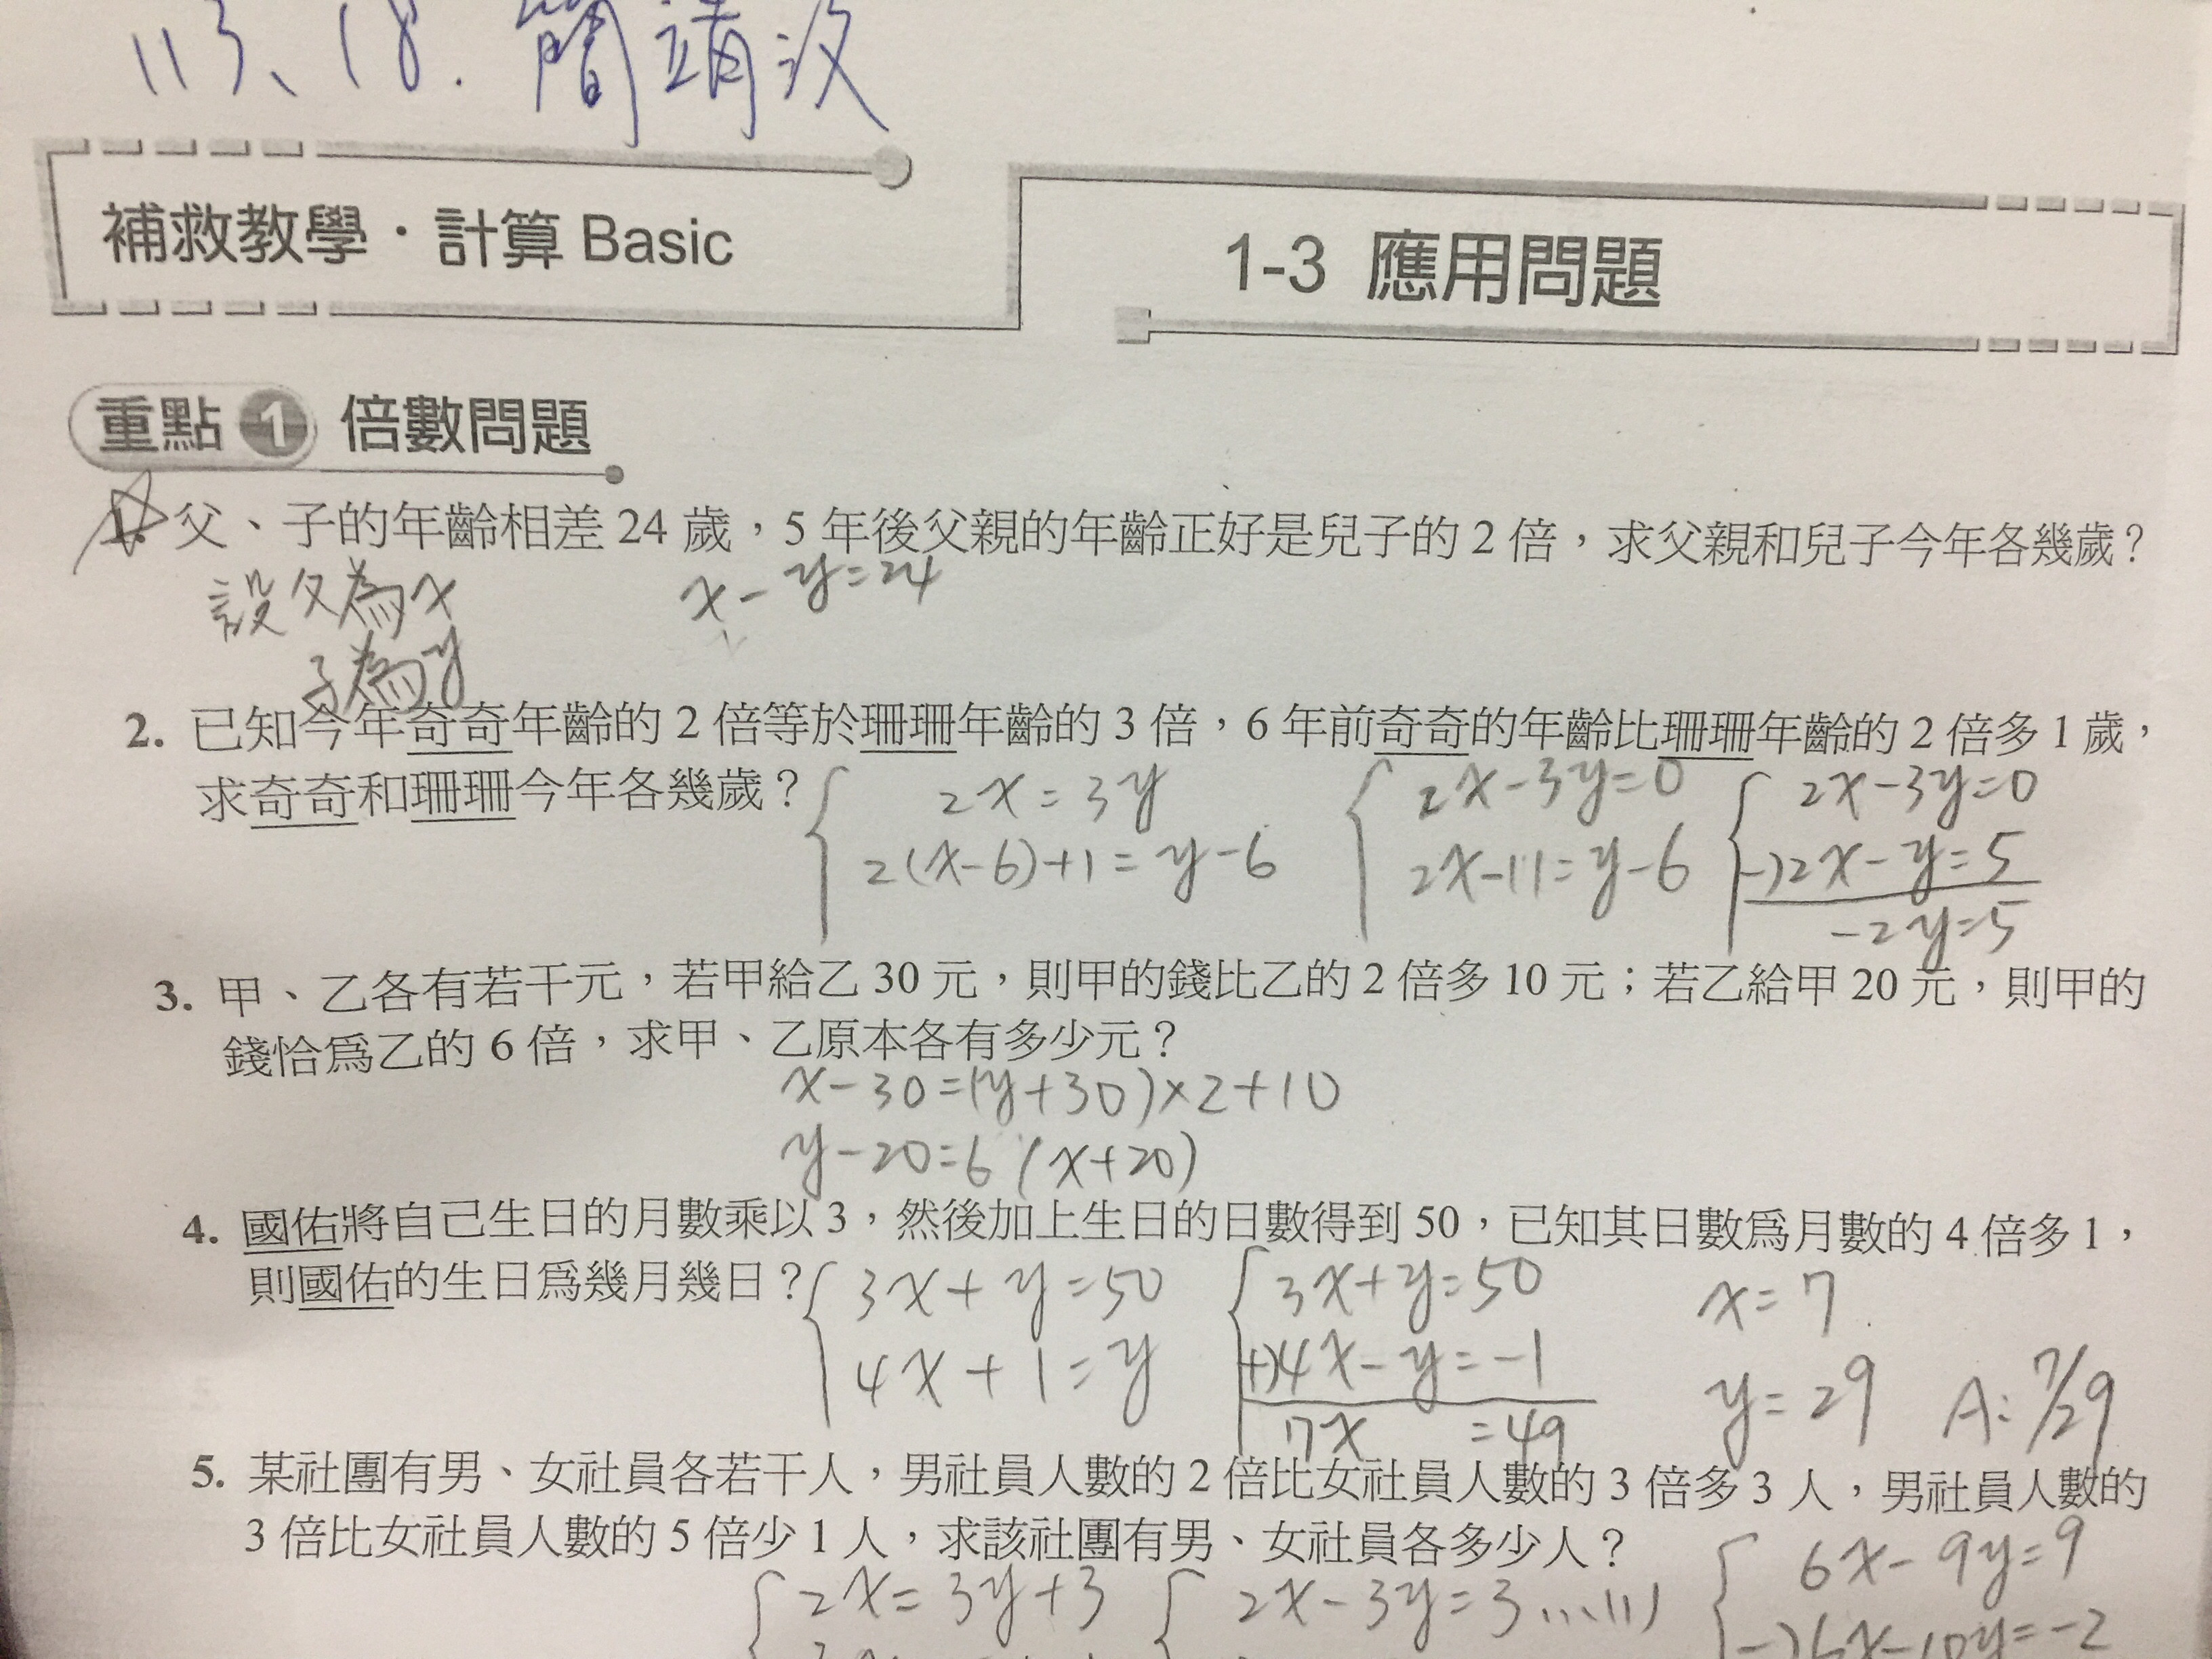 113、18. 簡靖汶
補救教學·計算 Basic
1-3 應用問題
重點 1 倍數問題
1. 父、子的年齡相差 24 歲，5 年後父親的年齡正好是兒子的 2 倍，求父親和兒子今年各幾歲？
設父為x x-y=24
子為y
2. 已知今年奇奇年齡的 2 倍等於珊珊年齡的 3 倍，6 年前奇奇的年齡比珊珊年齡的 2 倍多 1 歲，
求奇奇和珊珊今年各幾歲？ 2x=3y 2x-3y=0 2x-3y=0
2(x-6)+1=y-6 2x-11=y-6 -)2x-y=5
-2y=5
3. 甲、乙各有若干元，若甲給乙 30 元，則甲的錢比乙的 2 倍多 10 元；若乙給甲 20 元，則甲的
錢恰爲乙的 6 倍，求甲、乙原本各有多少元？
x-30=(y+30)×2+10
y-20=6(x+20)
4. 國佑將自己生日的月數乘以 3，然後加上生日的日數得到 50，已知其日數爲月數的 4 倍多 1，
則國佑的生日爲幾月幾日？ 3x+y=50 3x+y=50 x=7
4x+1=y +)4x-y=-1 y=29 A:7/29
7x =49
5. 某社團有男、女社員各若干人，男社員人數的 2 倍比女社員人數的 3 倍多 3 人，男社員人數的
3 倍比女社員人數的 5 倍少 1 人，求該社團有男、女社員各多少人？
2x=3y+3 2x-3y=3...(1) 6x-9y=9
-)6x-10y=-2